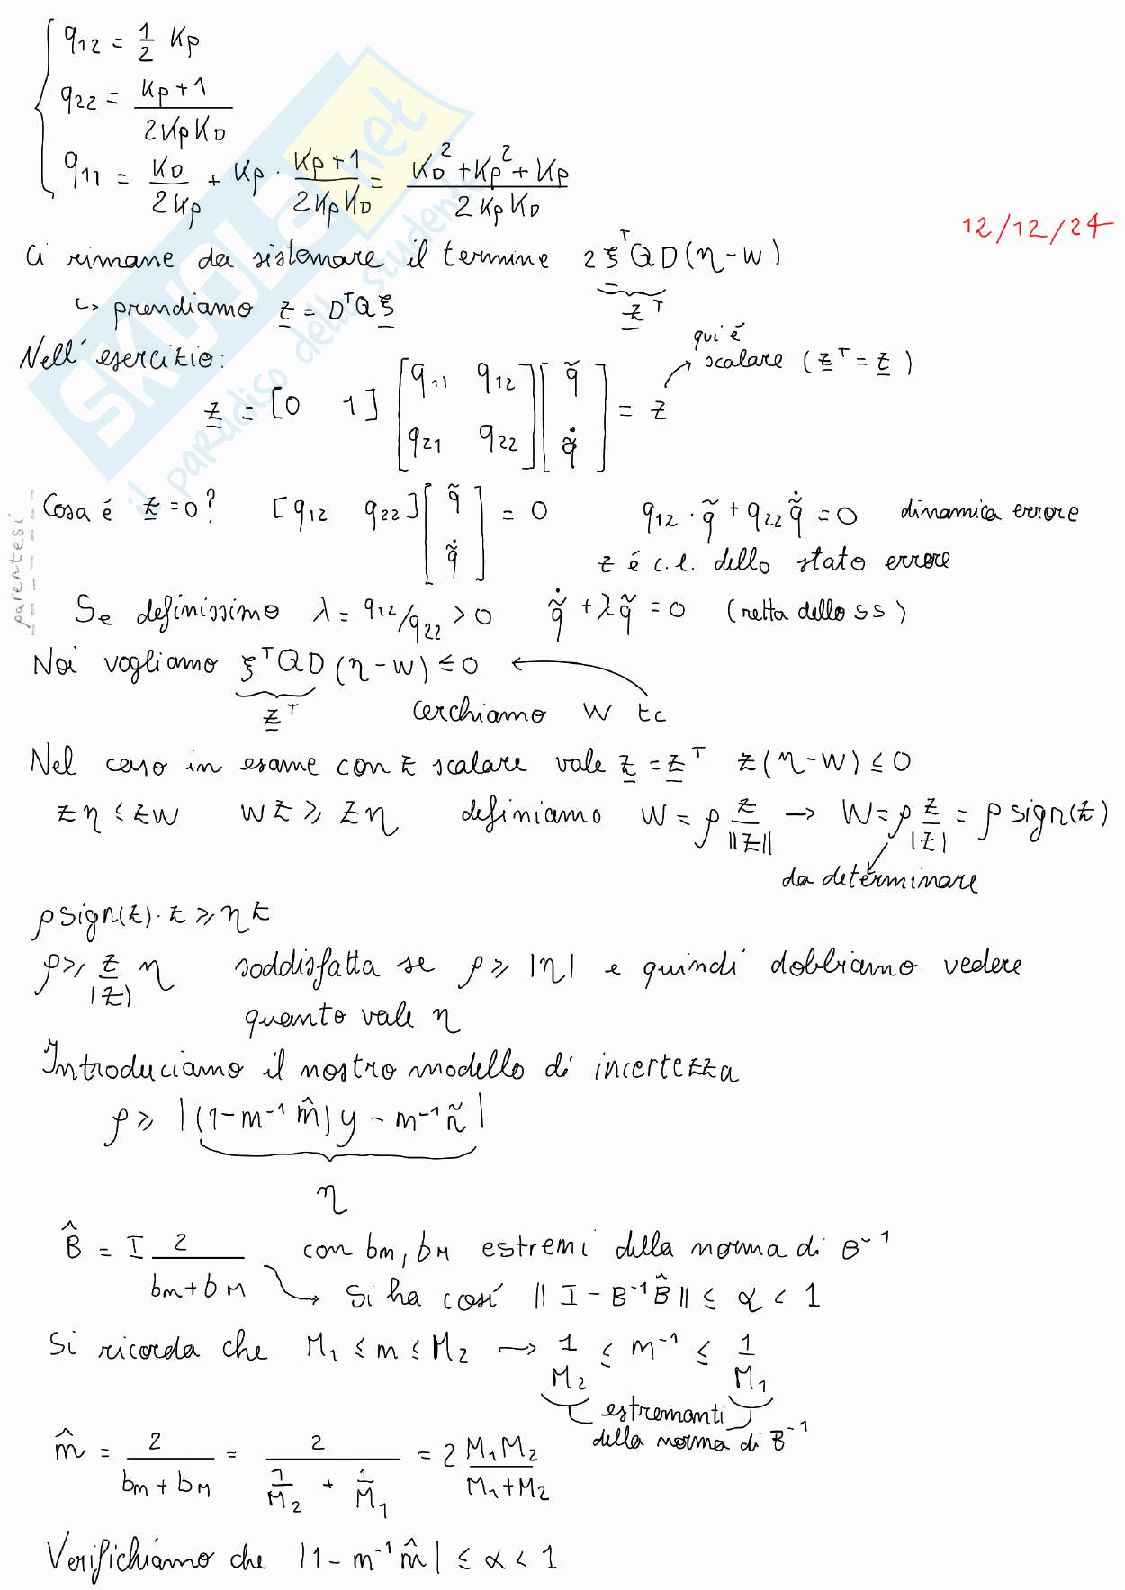 q₁₂ = 1/2 Kp
q₂₂ = (Kp+1)/(2KpKD)
q₁₁ = KD/(2Kp) + Kp · (Kp+1)/(2KpKD) = (KD²+Kp²+Kp)/(2KpKD)
12/12/24
Ci rimane da sistemare il termine 2ξᵀQD(η-w)
zᵀ
↳ prendiamo z = DᵀQξ
qui è
Nell'esercizio:
scalare (zᵀ = z)
z = [0 1] [q₁₁ q₁₂; q₂₁ q₂₂] [q̃; q̃̇] = z
parentesi
Cosa é z=0? [q₁₂ q₂₂] [q̃; q̃̇] = 0 q₁₂·q̃ + q₂₂q̃̇ = 0 dinamica errore
z é c.l. dello stato errore
Se definissimo λ = q₁₂/q₂₂ > 0 q̃̇ + λq̃ = 0 (retta dello ss)
Noi vogliamo ξᵀQD(η-w) ≤ 0
zᵀ cerchiamo w tc
Nel caso in esame con z scalare vale z = zᵀ z(η-w) ≤ 0
zη ≤ zw wz ≥ zη definiamo w = ρ z/||z|| → w = ρ z/|z| = ρ sign(z)
da determinare
ρ sign(z)·z ≥ ηz
ρ ≥ z/|z| η soddisfatta se ρ ≥ |η| e quindi dobbiamo vedere
quanto vale η
Introduciamo il nostro modello di incertezza
ρ ≥ |(1-m⁻¹m̂)y - m⁻¹ñ|
η
B̂ = I 2/(bm+bM) con bm, bM estremi della norma di B⁻¹
Si ha cosí || I - B⁻¹B̂ || ≤ α < 1
Si ricorda che M₁ ≤ m ≤ M₂ → 1/M₂ ≤ m⁻¹ ≤ 1/M₁
estremanti
della norma di B⁻¹
m̂ = 2/(bm+bM) = 2/(1/M₂ + 1/M₁) = 2 M₁M₂/(M₁+M₂)
Verifichiamo che |1-m⁻¹m̂| ≤ α < 1
SKUOLA.net
il paradiso dello studente